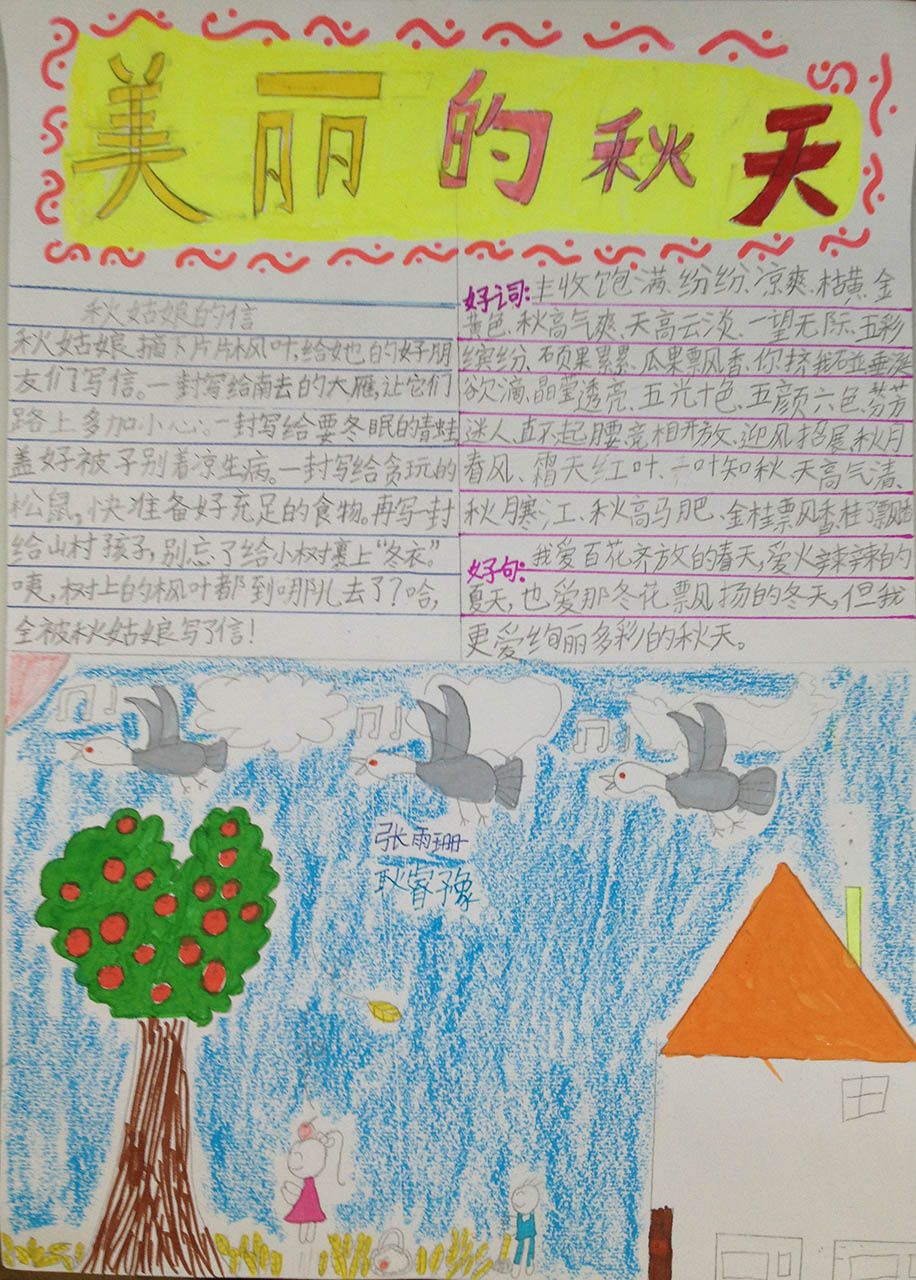 美丽的秋天
秋姑娘的信
秋姑娘,摘下片片枫叶,给她的好朋
友们写信。一封写给南去的大雁,让它们
路上多加小心;一封写给要冬眠的青蛙
盖好被子别着凉生病。一封写给贪玩的
松鼠,快准备好充足的食物。再写一封
给山村孩子,别忘了给小树裹上“冬衣”。
咦,树上的枫叶都到哪儿去了?哈,
全被秋姑娘写了信!
好词:丰收、饱满、纷纷、凉爽、枯黄、金
黄色、秋高气爽、天高云淡、一望无际、五彩
缤纷、硕果累累、瓜果飘香、你挤我碰、垂涎
欲滴、晶莹透亮、五光十色、五颜六色、芬芳
迷人、直不起腰、竞相开放、迎风招展、秋月
春风、霜天红叶、一叶知秋、天高气清、
秋月寒江、秋高马肥、金桂飘香、桂子飘香
好句:我爱百花齐放的春天,爱火辣辣的
夏天,也爱那冬花飘扬的冬天,但我
更爱绚丽多彩的秋天。
张雨珊
耿睿豫